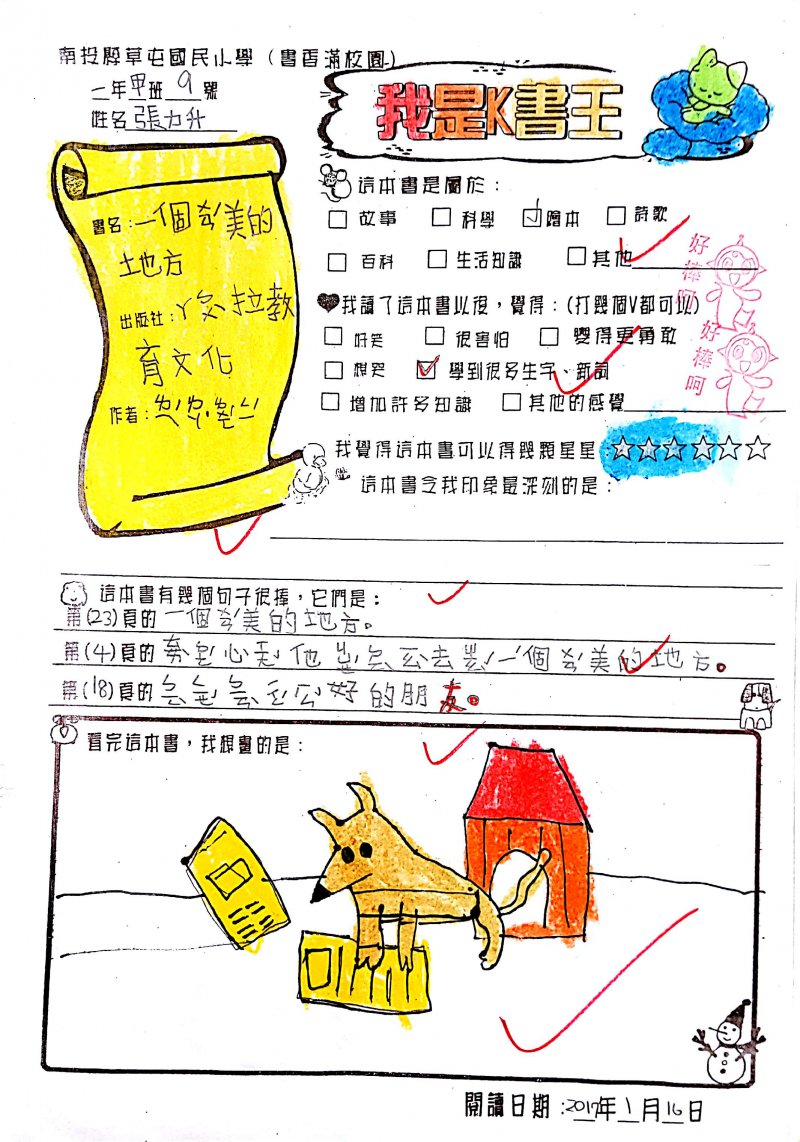 南投縣草屯國民小學（書香滿校園）
一年甲班 9 號
姓名 張力升
我是K書王
書名：一個ㄒㄧㄡ美的
地方
出版社：ㄚ拉教
育文化
作者：
這本書是屬於：
□ 故事 □ 科學 ☑ 繪本 □ 詩歌
□ 百科 □ 生活知識 □ 其他
我讀了這本書以後，覺得：(打幾個V都可以)
□ 好笑 □ 很害怕 □ 變得更勇敢
□ 想哭 ☑ 學到很多生字、新詞
□ 增加許多知識 □ 其他的感覺
好棒呵
好棒呵
我覺得這本書可以得幾顆星星：☆☆☆☆☆☆
這本書令我印象最深刻的是：
這本書有幾個句子很棒，它們是：
第(23)頁的 一個美的地方。
第(4)頁的 心 他 去 一個美的地方。
第(18)頁的 好的朋友。
看完這本書，我想畫的是：
閱讀日期：2017年1月16日